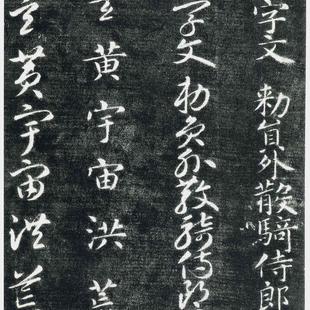 字文勅員外散騎侍郎
字文勅員外散騎侍郎
玄黄宇宙洪荒
玄黄宇宙洪荒